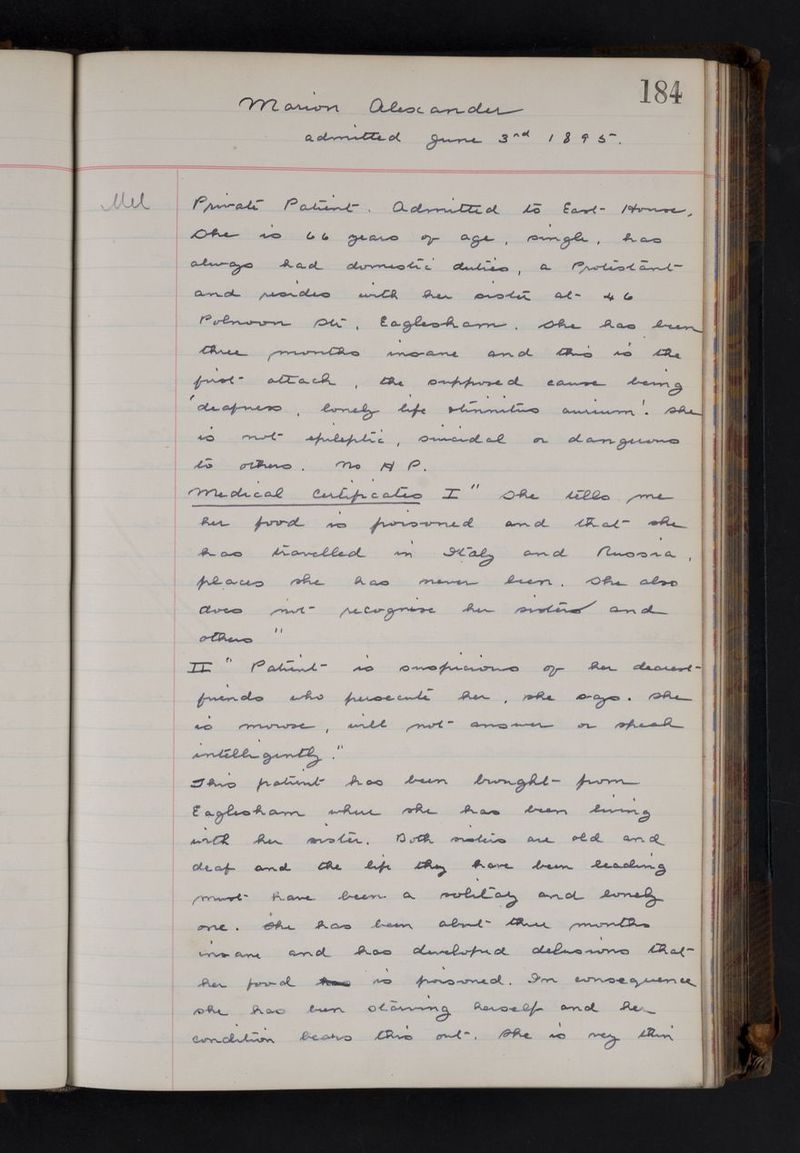 184
Marion Alexander
admitted June 3rd 1895.
Mel
Private Patient. Admitted to East House.
She is 66 years of age, single, has
always had domestic duties, a Protestant
and resides with her sister at 46
Polnoon St., Eaglesham. She has been
three months insane and this is the
first attack, the supposed cause being
'deafness, lonely life tinnitus aurium'. She
is not epileptic, suicidal or dangerous
to others. No H P.
Medical Certificates I " She tells me
her food is poisoned and that she
has travelled in Italy and Russia,
places she has never been. She also
does not recognise her sisters and
others "
II " Patient is suspicious of her dearest
friends who persecute her, she says. She
is morose, will not answer or speak
intelligently."
This patient has been brought from
Eaglesham where she has been living
with her sister. Both sisters are old and
deaf and the life they have been leading
must have been a solitary and lonely
one. She has been about three months
insane and has developed delusions that
her food is poisoned. In consequence
she has been starving herself and her
condition bears this out. She is very thin